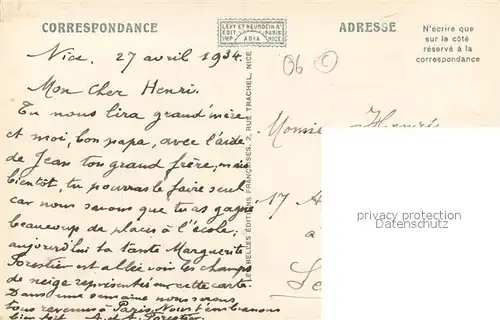 CORRESPONDANCE
LEVY ET NEURDEIN Rs
EDIT PARIS
IMP. ADIA NICE
ADRESSE
N'écrire que
sur le côté
réservé à la
correspondance
Nice, 27 avril 1934
06 C
Mon Cher Henri.
Tu nous lira grand'mère
et moi, bon papa, avec l'aide
de Jean ton grand frère, mais
bientôt, tu pourras le faire seul
car nous savons que tu as gagné
beaucoup de places à l'école;
aujourd'hui la tante Marguerite
Forestier est allée voir les champs
de neige représentés sur cette carte.
Dans une semaine nous serons
tous revenus à Paris. Nous t'embrassons
bien fort. A. et A. Forestier
LES BELLES ÉDITIONS FRANÇAISES, 2, RUE TRACHEL, NICE
Monsie Henri
17 A
à
privacy protection
Datenschutz